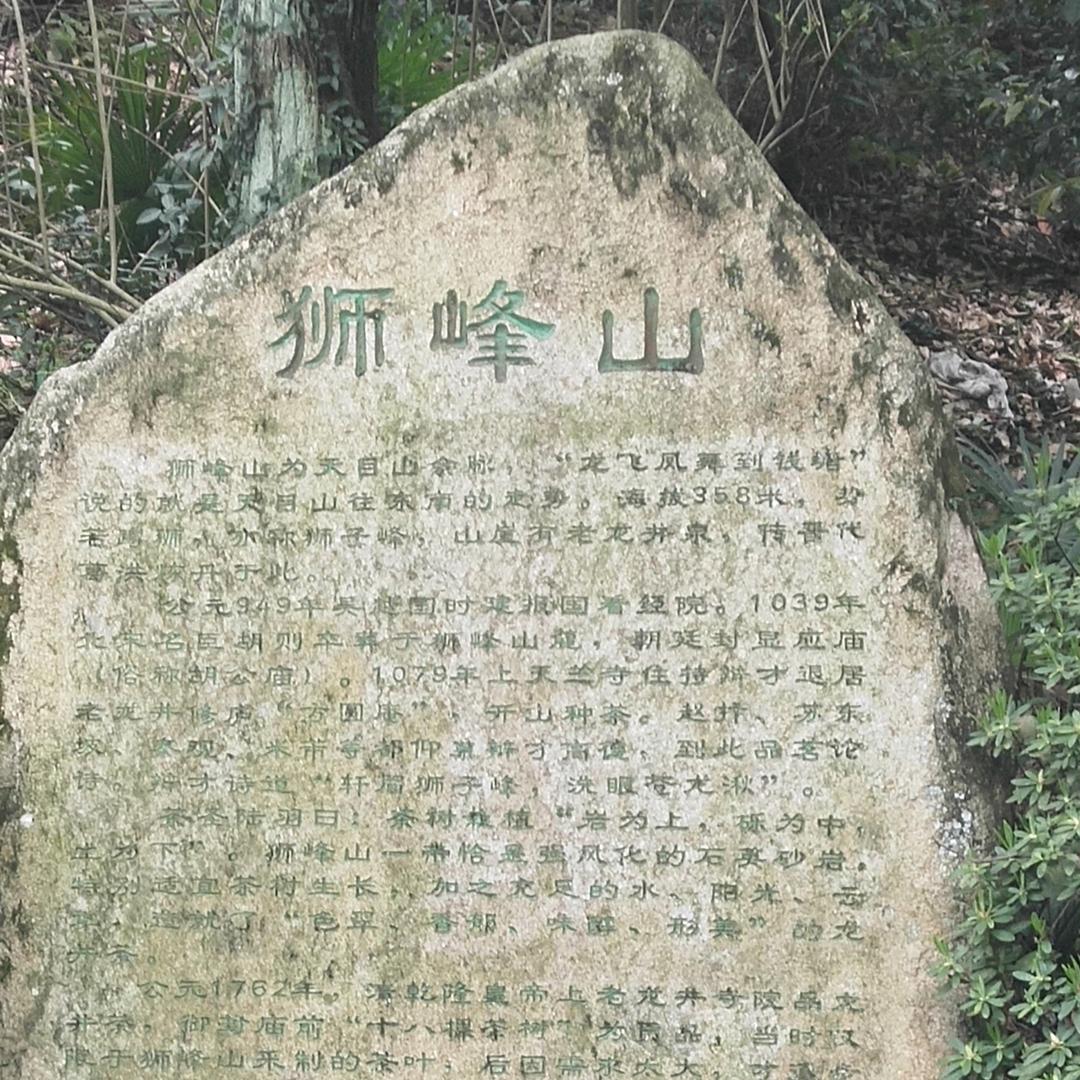 狮峰山
狮峰山为天目山余脉，“龙飞凤舞到钱塘”
说的就是天目山往东南的走势。海拔358米，势
若蹲狮，亦称狮子峰，山崖有老龙井泉，传晋代
葛洪炼丹于此。
公元949年吴越国时建报国看经院。1039年
北宋名臣胡则卒葬于狮峰山麓，朝廷封显应庙
（俗称胡公庙）。1079年上天竺寺住持辨才退居
老龙井修庐“方圆庵”，开山种茶。赵抃、苏东
坡、秦观、米芾等都仰慕辨才高德，到此品茗论
诗。辨才诗道“轩眉狮子峰，洗眼苍龙湫”。
茶圣陆羽曰：茶树栽植“岩为上，砾为中，
土为下”。狮峰山一带恰是强风化的石英砂岩，
特别适宜茶树生长，加之充足的水、阳光、云
雾，造就了“色翠、香郁、味醇、形美”的龙
井茶。
公元1762年，清乾隆皇帝上老龙井寺院品龙
井茶，御封庙前“十八棵茶树”为贡品，当时仅
限于狮峰山采制的茶叶；后因需求太大，才